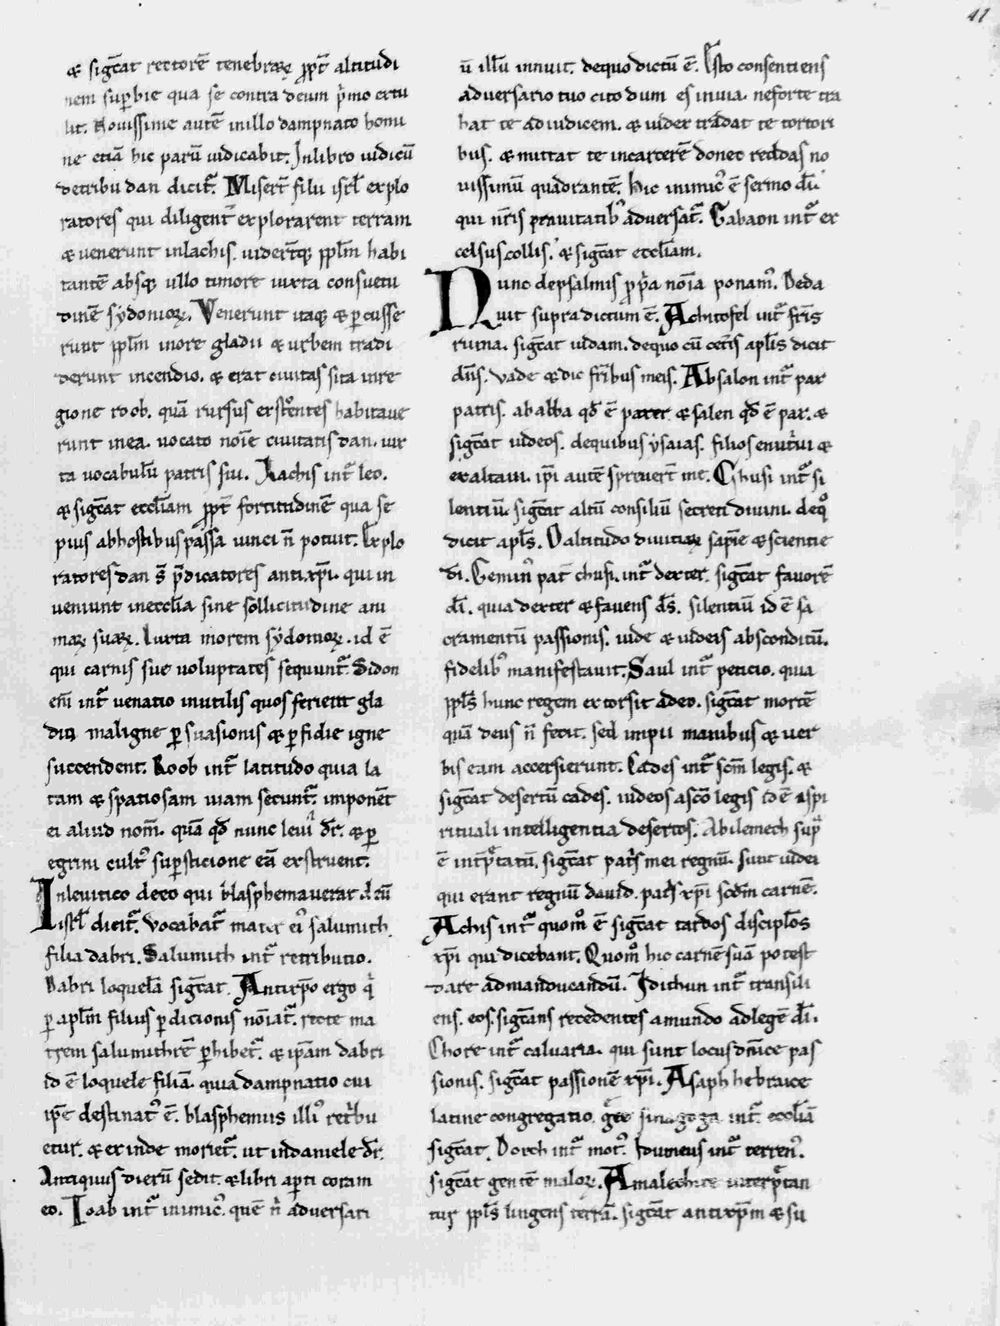 41
⁊ sigc̄at rectorē tenebraꝝ ꝓpt̄ altitudi
nem suꝑbie qua se contra deum p̍mo extu
lit. Nouissime autē inillo dampnato homi
ne etiā hic parū iudicabit̄. Inlibro iudicū
detribu dan dicit̄. Miser̄t filii isrl̄ explo
ratores qui diligent̄ explorarent terram
⁊ uenerunt inlachis. uider̄tq; ppl̄m habi
tantē absq; ullo timore iuxta consuetu
dinē sydonioꝝ. Venerunt itaq; ⁊ ꝑcusse
runt ppl̄m inore gladii ⁊ urbem tradi
derunt incendio. ⁊ erat ciuitas sita inre
gione roob. quā rursus exstruentes habitaue
runt inea. uocato noīe ciuitatis dan. iux
ta vocabulū patris sui. Lachis int̄ leo.
⁊ sigc̄at eccl̄iam ꝓpt̄ fortitudinē qua se
pius abhostibus passa uinci n̄ potuit. Explo
ratores dan s̄ p̄dicatores antixp̄i. qui in
ueniunt ineccl̄ia sine sollicitudine ani
maꝝ suaꝝ. Iuxta morem sydonioꝝ. id ē
qui carnis sue voluptates sequunt̄. Sidon
eni̅ int̄ uenatio inutilis quos ferient gla
dio maligne ꝑsuasionis ⁊ ꝑfidie igne
succendent. Roob int̄ latitudo quia la
tam ⁊ spatiosam uiam secunt̄. imponēt
ei aliud nom̄. quā qd̄ nunc leui dr̄. ⁊ ꝑ
egrini cult᷒ suꝑsticione eā exstruent.
Inleuitico deeo qui blasphemauerat d̄eū
isrl̄ dicit̄. Vocabat̄ mater ei᷒ salumith
filia dabri. Salumith int̄ retributio.
Dabri loquelā sigc̄at. Antixp̄o ergo q̍
ꝑ apl̄m filius ꝑdicionis noīat̄. recte ma
trem salumithrē ꝑhibet̄. ⁊ ip̄am dabri
id ē loquele filiā. quia dampnatio cui
ip̄e destinat᷒ ē. blasphemus illi᷒ ret̍bu
etur. ⁊ exinde moriet̄. ut indaniele dr̄.
Antiquus dierū sedit. ⁊ libri apti coram
eo. Ioab int̄ inimic᷒. quē n̄ aduersari
ū illū innuit. dequo dictū ē. Esto consentiens
aduersario tuo cito dum es inuia. neforte tra
hat te adiudicem. ⁊ iudex tradat te tortori
bus. ⁊ mittat te incarcerē donec reddas no
uissimū quadrantē. Hic inimic᷒ ē sermo di̅
qui nr̄is prauitatib᷒ aduersat̄. Gabaon int̄ ex
celsus collis. ⁊ sigc̄at eccl̄iam.
Nunc depsalmis ꝓp̍a noīa ponam᷒. Deda
uit supradictum ē. Achitofel int̄ fr̄is
ruina. sigc̄at iudam. dequo cū cet̄is apl̄is dicit
dn̄s. Vade ⁊ dic fr̄ibus meis. Absalon int̄ pax
patris. ab abba qd̄ ē pater ⁊ salen qd̄ ē pax. ⁊
sigc̄at iudeos. dequibus ysaias. filios enut̍ui ⁊
exaltaui. ip̄i autē spreuer̄t me. Chusi int̄ si
lentiū. sigc̄at altū consiliū secreti diuini. deq°
dicit apl̄s. O altitudo diuitiaꝝ sapīe ⁊ scientie
di̅. Gemin᷒ pat̄ chusi. int̄ dexter. sigc̄at fauorē
di̅. quia dexter ⁊ fauens d̄s. silentiū id ē sa
cramentū passionis. uide ⁊ iudeis absconditū.
fidelib᷒ manifestauit. Saul int̄ peticio. quia
ppl̄s hunc regem extorsit adeo. sigc̄at mortē
quā deus n̄ fecit. sed impii manibus ⁊ uer
bis eam accersierunt. Cades int̄ sc̄m legis. ⁊
sigc̄at desertū cades. iudeos a sc̄o legis id ē aspi
rituali intelligentia desertos. Abilemech sup̍
ē int̄p̍tatū. sigc̄at patris mei regnū. sunt iudei
qui erant regnū dauid. patris xp̄i scd̄m carnē.
Achis int̄ quom̄ ē sigc̄at tardos discipl̄os
xp̄i qui dicebant. Quom̄ hic carnē suā potest
dare admanducandū. Idithun int̄ transili
ens. eos. sigc̄ans recedentes amundo adlegē di̅.
Chore int̄ caluaria. qui sunt locus dn̄ice pas
sionis. sigc̄at passionē xp̄i. Asaph hebraice
latine congregatio. gr̄ce sinagoga int̄. eccl̄iā
sigc̄at. Doech int̄ mot᷒. Idumeus int̄ terren᷒.
sigc̄at gentē maloꝝ. Amalechite int̄p̍tan
tur ppl̄s lingens terrā. sigc̄at antixp̄m ⁊ su